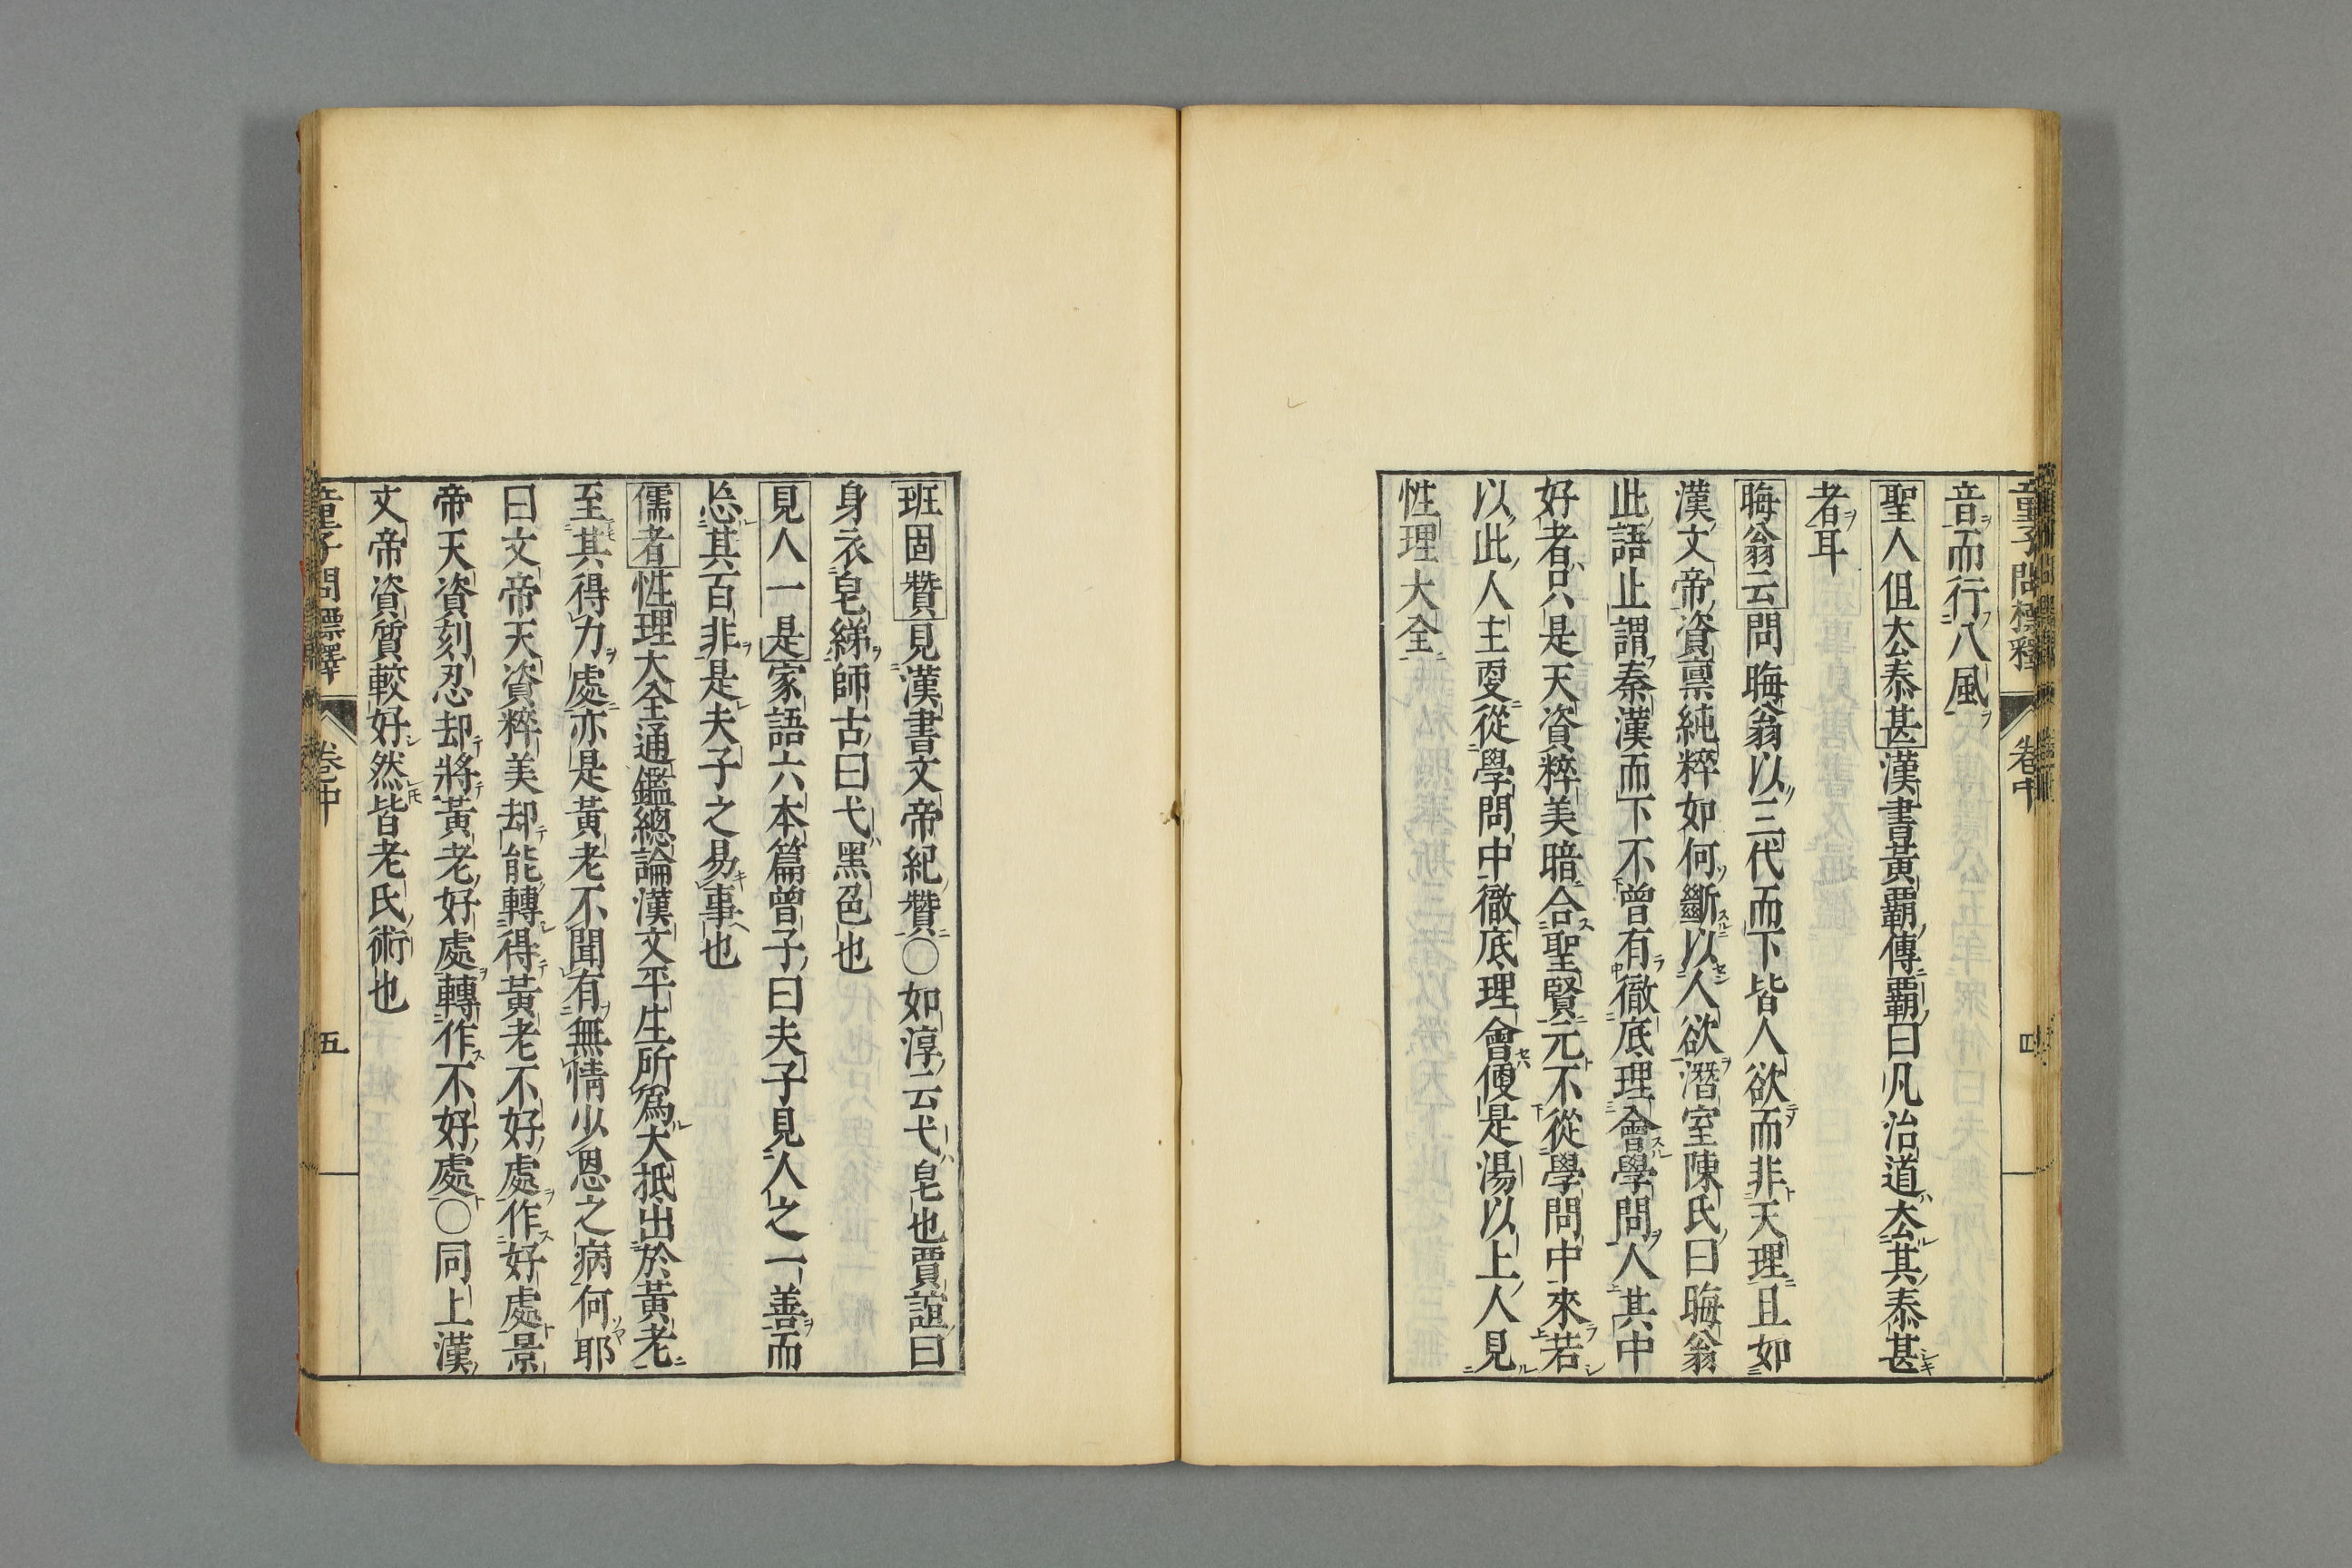 童子問標釋 卷中 四
音而行八風
聖人但厺泰甚漢書黃霸傳霸曰凡治道厺其泰甚
者耳
晦翁云問晦翁以三代而下皆人欲而非天理且如
漢文帝資禀純粹如何斷以人欲潛室陳氏曰晦翁
此語止謂秦漢而下不曾有徹底理會學問人其中
好者只是天資粹美暗合聖賢元不從學問中來若
以此人主更從學問中徹底理會便是湯以上人見
性理大全
班固贊見漢書文帝紀贊〇如淳云弋皂也賈誼曰
身衣皂綈師古曰弋黑色也
見人一是家語六本篇曾子曰夫子見人之一善而
忘其百非是夫子之易事也
儒者性理大全通鑑總論漢文平生所爲大抵出於黃老
至其得力處亦是黃老不聞有無情少恩之病何耶
曰文帝天資粹美却能轉得黃老不好處作好處景
帝天資刻忍却將黃老好處轉作不好處〇同上漢
文帝資質較好然皆老氏術也
童子問標釋 卷中 五